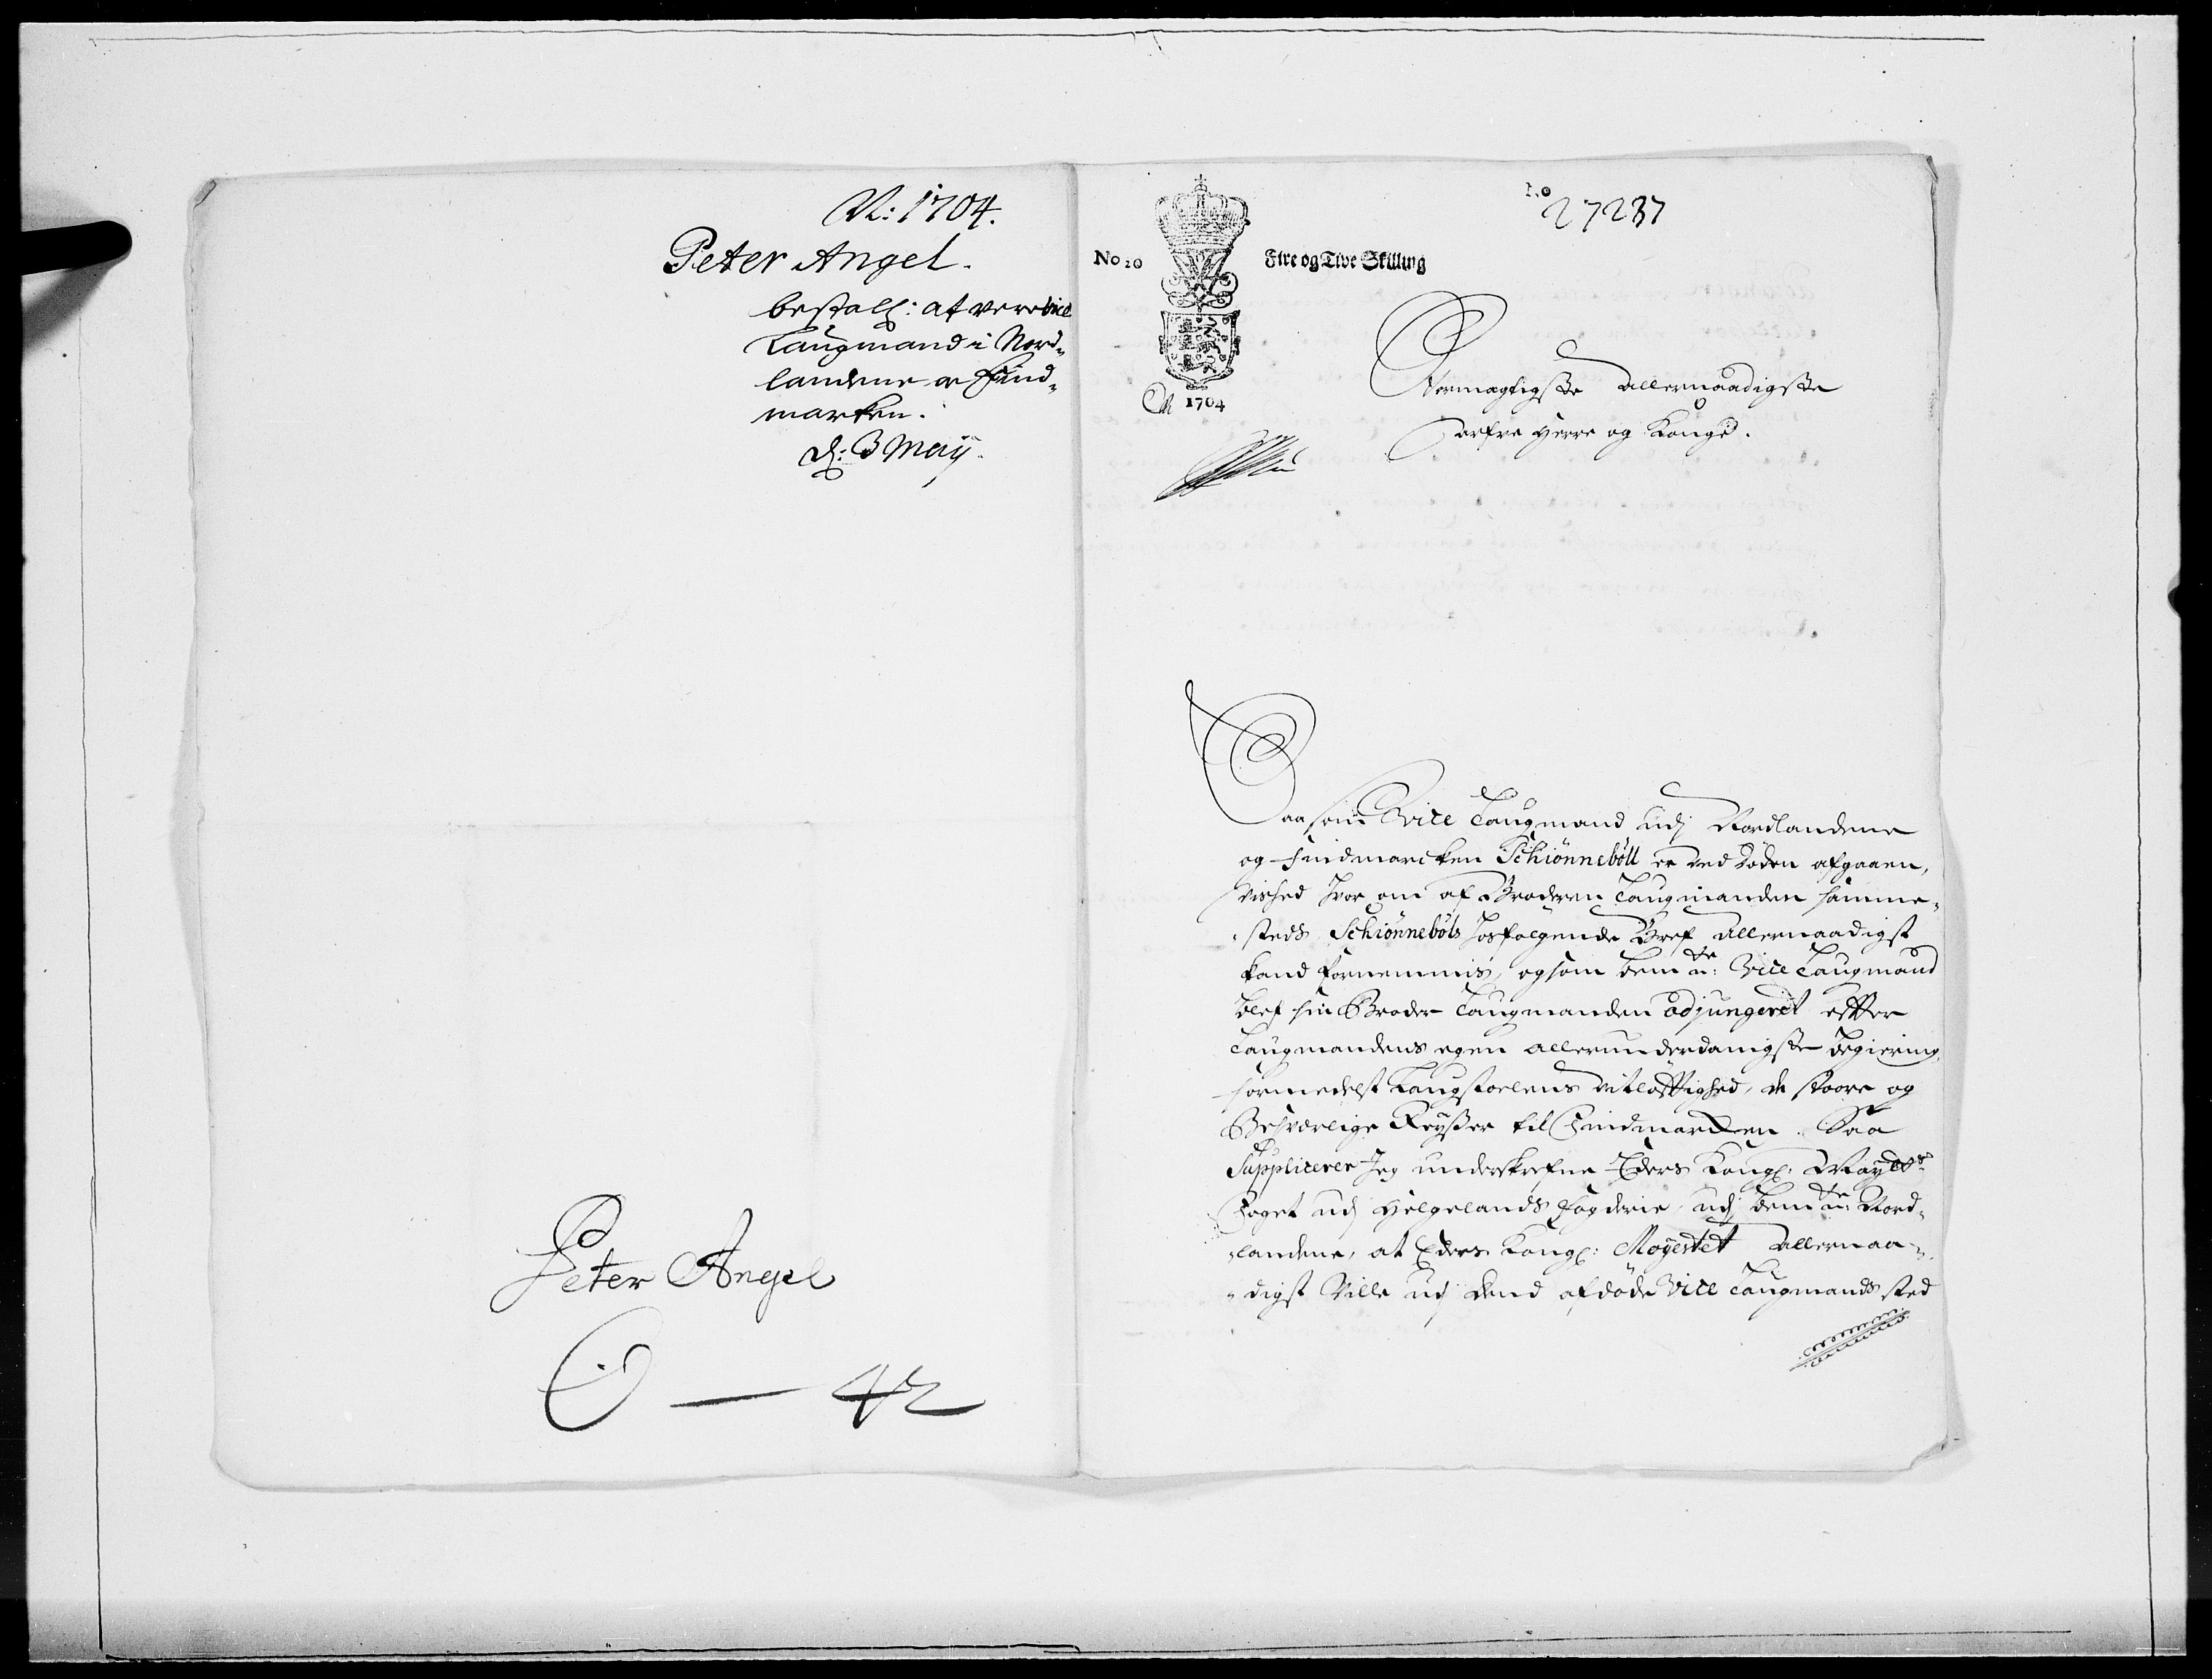 A: 1704.
Peter Angel.
bestall: at være vice
Laugmand i Nord„
landene oc Find„
marken.
d: 3 Maij.
Peter Angel
42
No 20
Fire og Tive Skilling
No
27237
A 1704
Stormægtigste Allernaadigste
Arfve Herre og Konge.
Saasom Vice Laugmand udj Nordlandene
og Findmarcken Schiönneböll er ved Döden afgaaen,
Vished hvor om af Broderen Laugmanden samme„
„steds Schiönneböls hosfölgende Bref Allernaadigst
kand fornemmis, og som bem.te: Vice Laugmand
blef sin Broder Laugmanden adjungeret effter
Laugmandens egen allerunderdanigste begiering,
formedelst Laugstoelens vitlöfftighed, de stoore og
Besværlige Reyßer til Findmarcken. Saa
Supplicerer Jeg underskrefne Eders Kongl: Mayts:
Foget udj Helgelands Fogderie udj bem.te: Nord„
„landene, at Eders Kongl: Mayestet Allernaa„
„digst Ville udj bemd afdöde Vice Laugmands sted